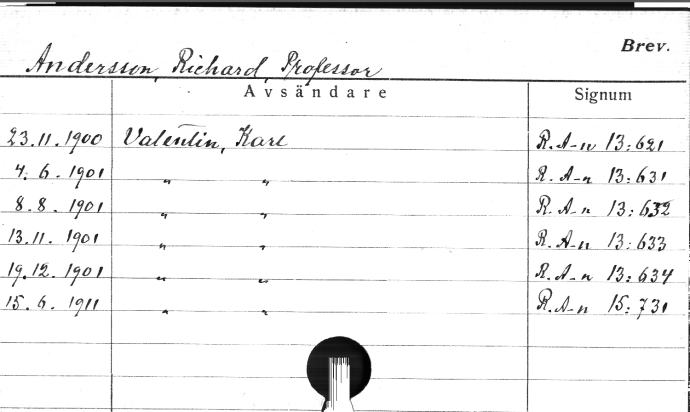 Brev.
Andersson, Richard, Professor
Avsändare Signum
23.11.1900 Valentin, Karl R. A-n 13:621
4. 6. 1901 " " R. A-n 13:631
8. 8. 1901 " " R. A-n 13:632
13.11. 1901 " " R. A-n 13:633
19.12. 1901 " " R. A-n 13:634
15. 6. 1911 " " R. A-n 15:731